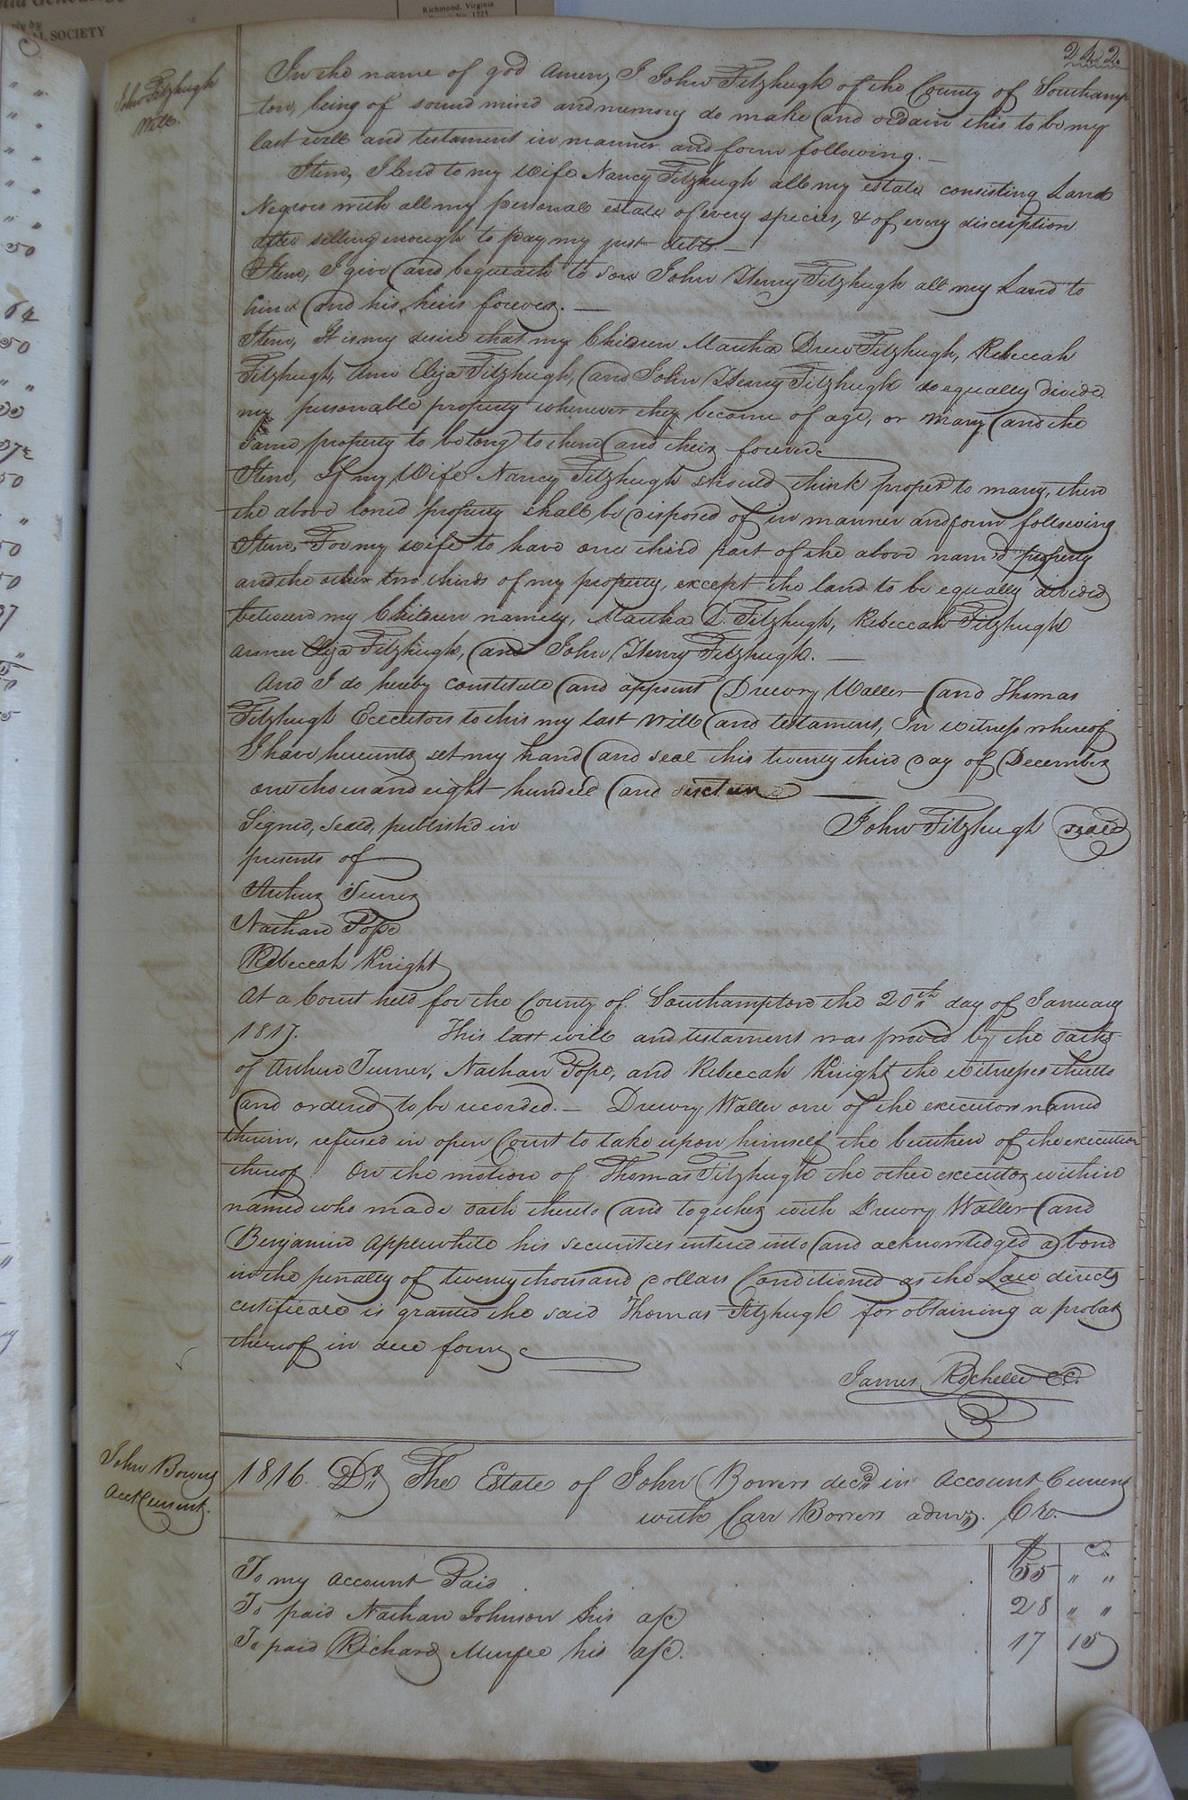 Richmond, Virginia
AL SOCIETY
242
John Fitzhugh
Will
In the name of god Amen, I John Fitzhugh of the County of Southamp
ton, being of sound mind and memory do make and ordain this to be my
last will and testament in manner and form following. —
Item, I lend to my Wife Nancy Fitzhugh all my estate consisting Land
Negroes with all my personal estate of every species, & of every discription
after selling enough to pay my just debts. —
Item, I give and bequeath to son John Henry Fitzhugh all my Land to
him and his heirs forever. —
Item, It is my desire that my Children Martha Drew Fitzhugh, Rebeccah
Fitzhugh, Ann Eliza Fitzhugh, and John Henry Fitzhugh do equally divide
my personable property whenever they become of age, or marry and the
same property to belong to them and theirs forever
Item, If my Wife Nancy Fitzhugh should think proper to marry, then
the above loned property shall be disposed of in manner and form following
Item, For my wife to have one third part of the above named property
and the other two thirds of my property, except the land to be equally divided
between my Children namely, Martha D. Fitzhugh, Rebeccah Fitzhugh
Eliza Fitzhugh, and John Henry Fitzhugh. —
And I do hereby constitute and appoint Drewry Waller and Thomas
Fitzhugh Executors to this my last will and testament, In witness whereof
I have hereunto set my hand and seal this twenty third day of December
one thousand eight hundred and sixteen —
John Fitzhugh seal
Signed, Seald, publish'd in
presents of
Arthur Turner
Nathan Pope
Rebeccah Knight
At a Court held for the County of Southampton the 20th day of January
1817. This last will and testament was proved by the oaths
of Arthur Turner, Nathan Pope, and Rebeccah Knight the witnesses thereto
and ordered to be recorded. — Drewry Waller one of the executors named
therein, refused in open Court to take upon himself the burthen of the execution
thereof On the motion of Thomas Fitzhugh the other executor within
named who made oath thereto and together with Drewry Waller and
Benjamin Applewhite his securities entered into and acknowledged a bond
in the penalty of twenty thousand dollars Conditioned as the Law directs
certificate is granted the said Thomas Fitzhugh for obtaining a probat
thereof in due form
James Rochelle C.C.
John Bowers
Acct Current.
1816. Dr The Estate of John Bowers decd in Account Current
with Carr Bowers admr. Cr.
$ C
To my account Paid 55 " "
To paid Nathan Johnson his a/c 28 " "
To paid Richard Murfee his a/c. 17 15